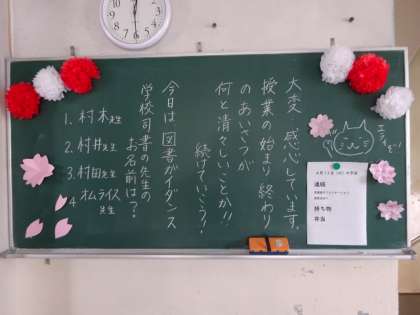 大変、感心しています。
授業の始まり、終わり
のあいさつが
何と清々しいことか!!
続けていこう!!
今日は図書ガイダンス
学校司書の先生の
お名前は?
1. 村木先生
2. 村井先生
3. 村田先生
4 オムライス先生
連絡
持ち物
弁当